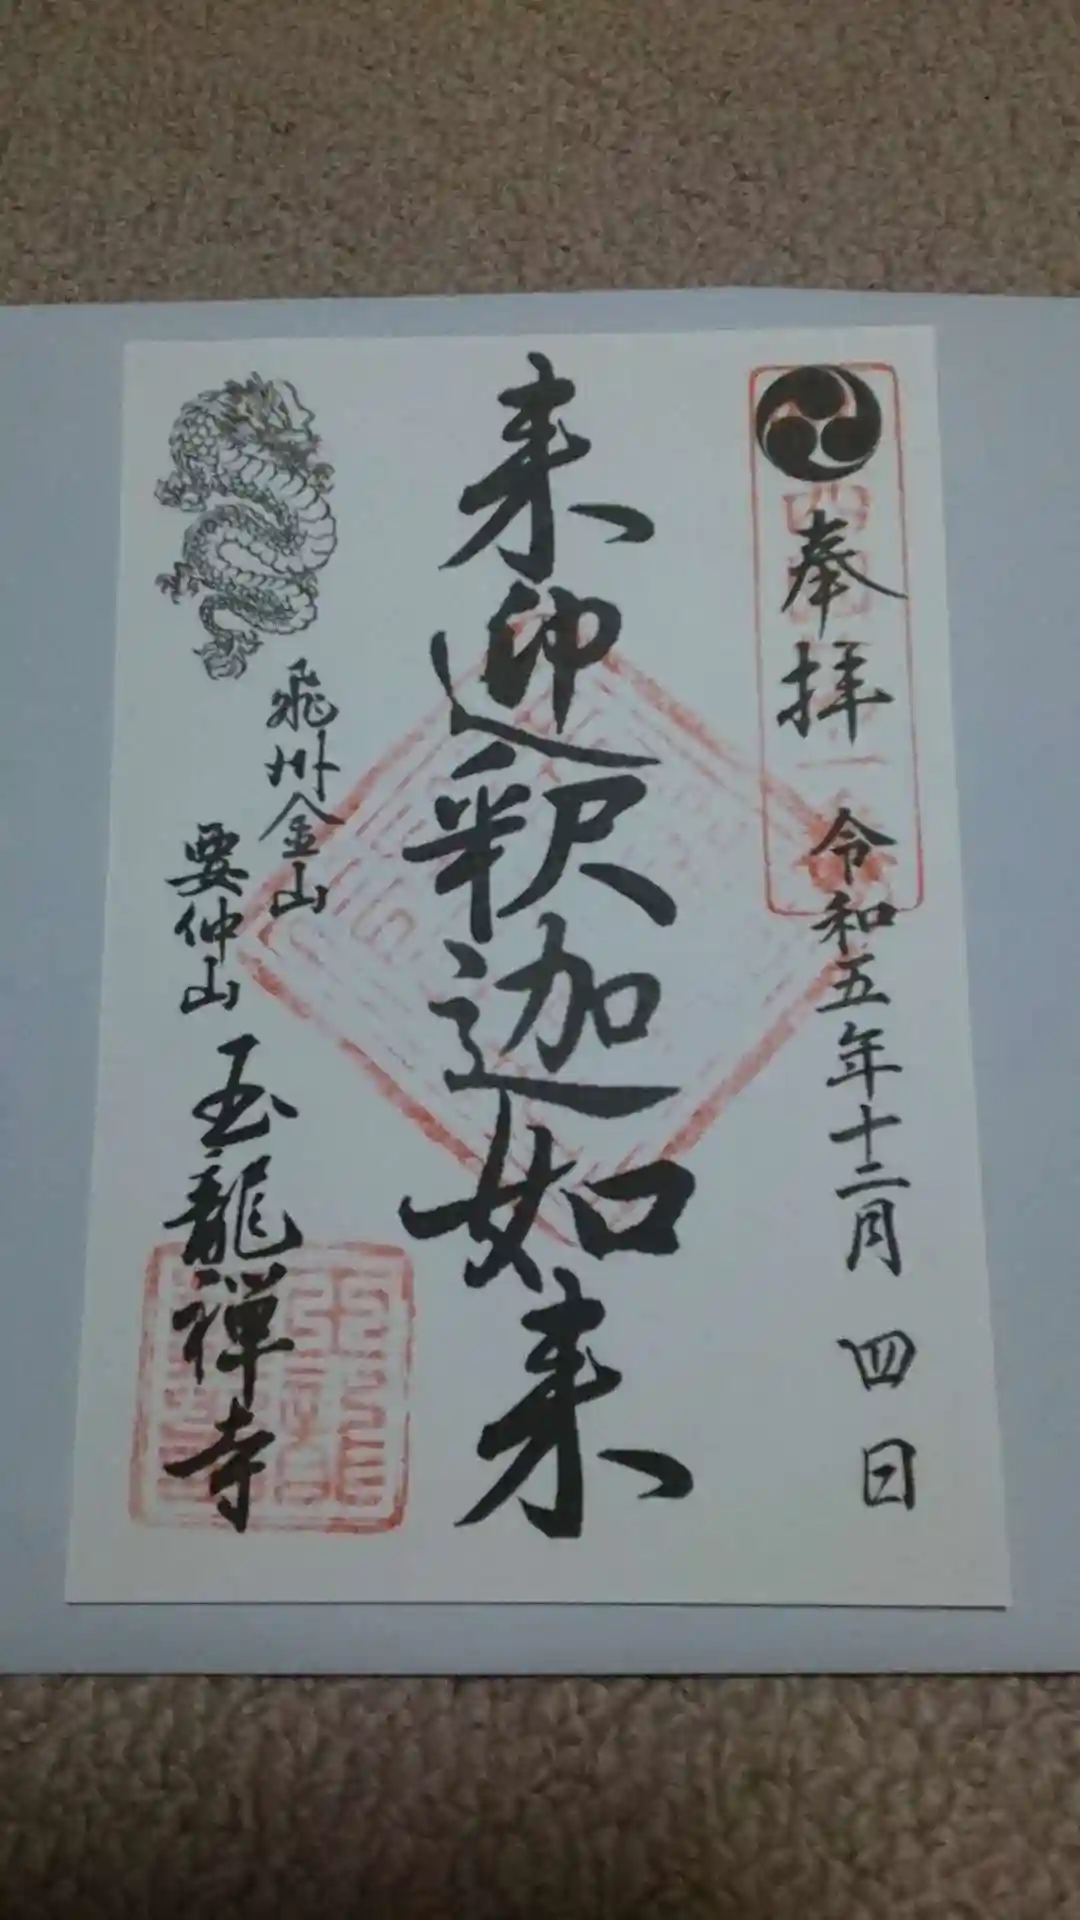 奉拝
令和五年十二月四日
来迎釈迦如来
飛州金山
要仲山
玉龍禅寺